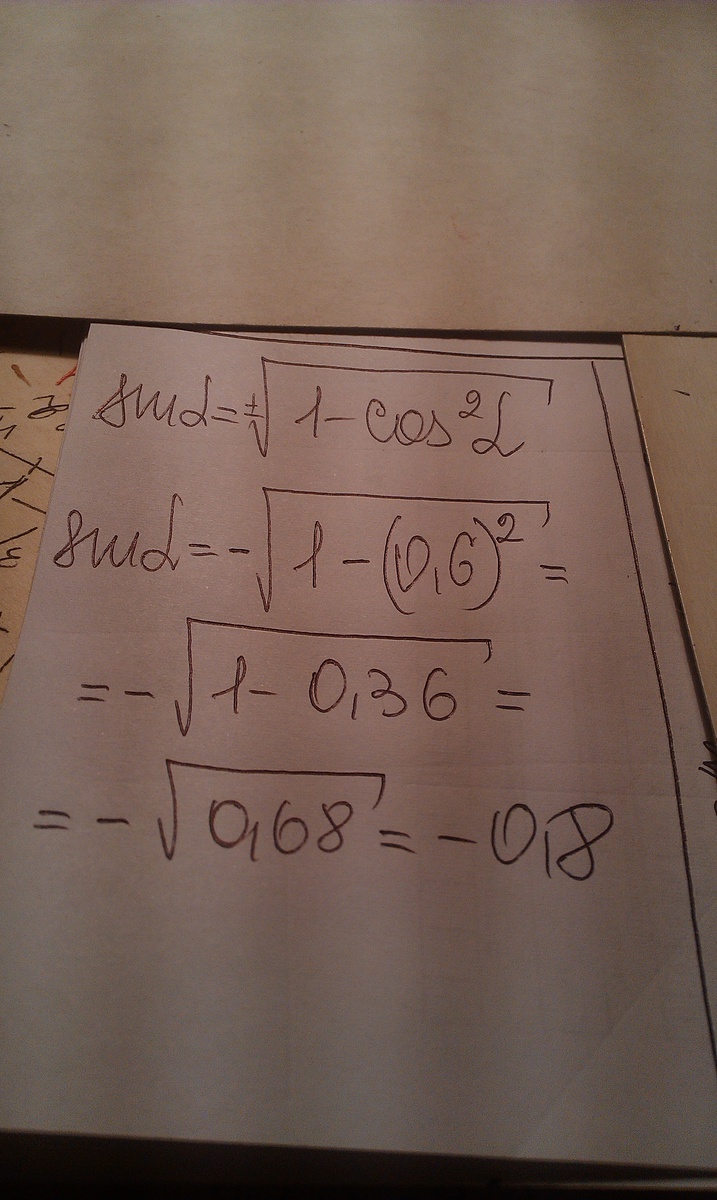 sin α = ±√(1 - cos² α)
sin α = -√(1 - (0,6)²) =
= -√(1 - 0,36) =
= -√(0,68) = -0,8